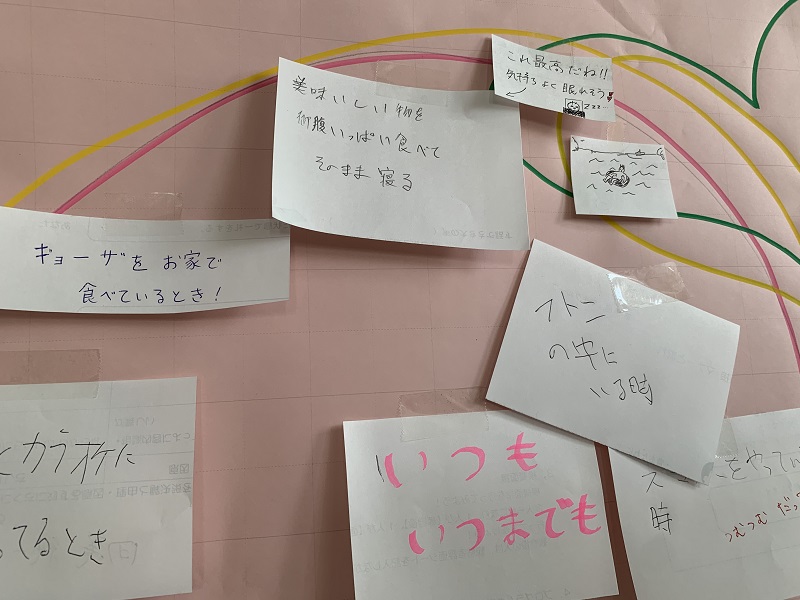 美味しい物を
お腹いっぱい食べて
そのまま寝る
これ最高だね!!
気持ちよく眠れそう
zzz…
ギョーザをお家で
食べているとき!
フトン
の中に
いる時
カラオケに
てるとき
いつも
いつまでも
をやってい
時
つむつむ だっ